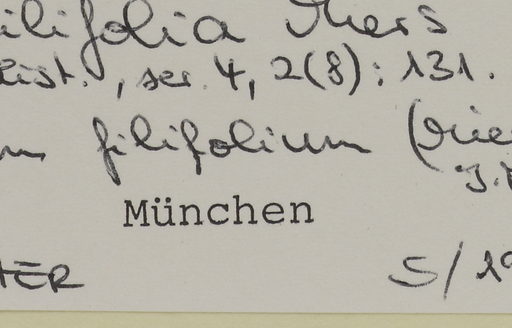 ilifolia Miers
ist., ser. 4, 2(8): 131.
m filifolium (Mie
J.
München
TER S/19